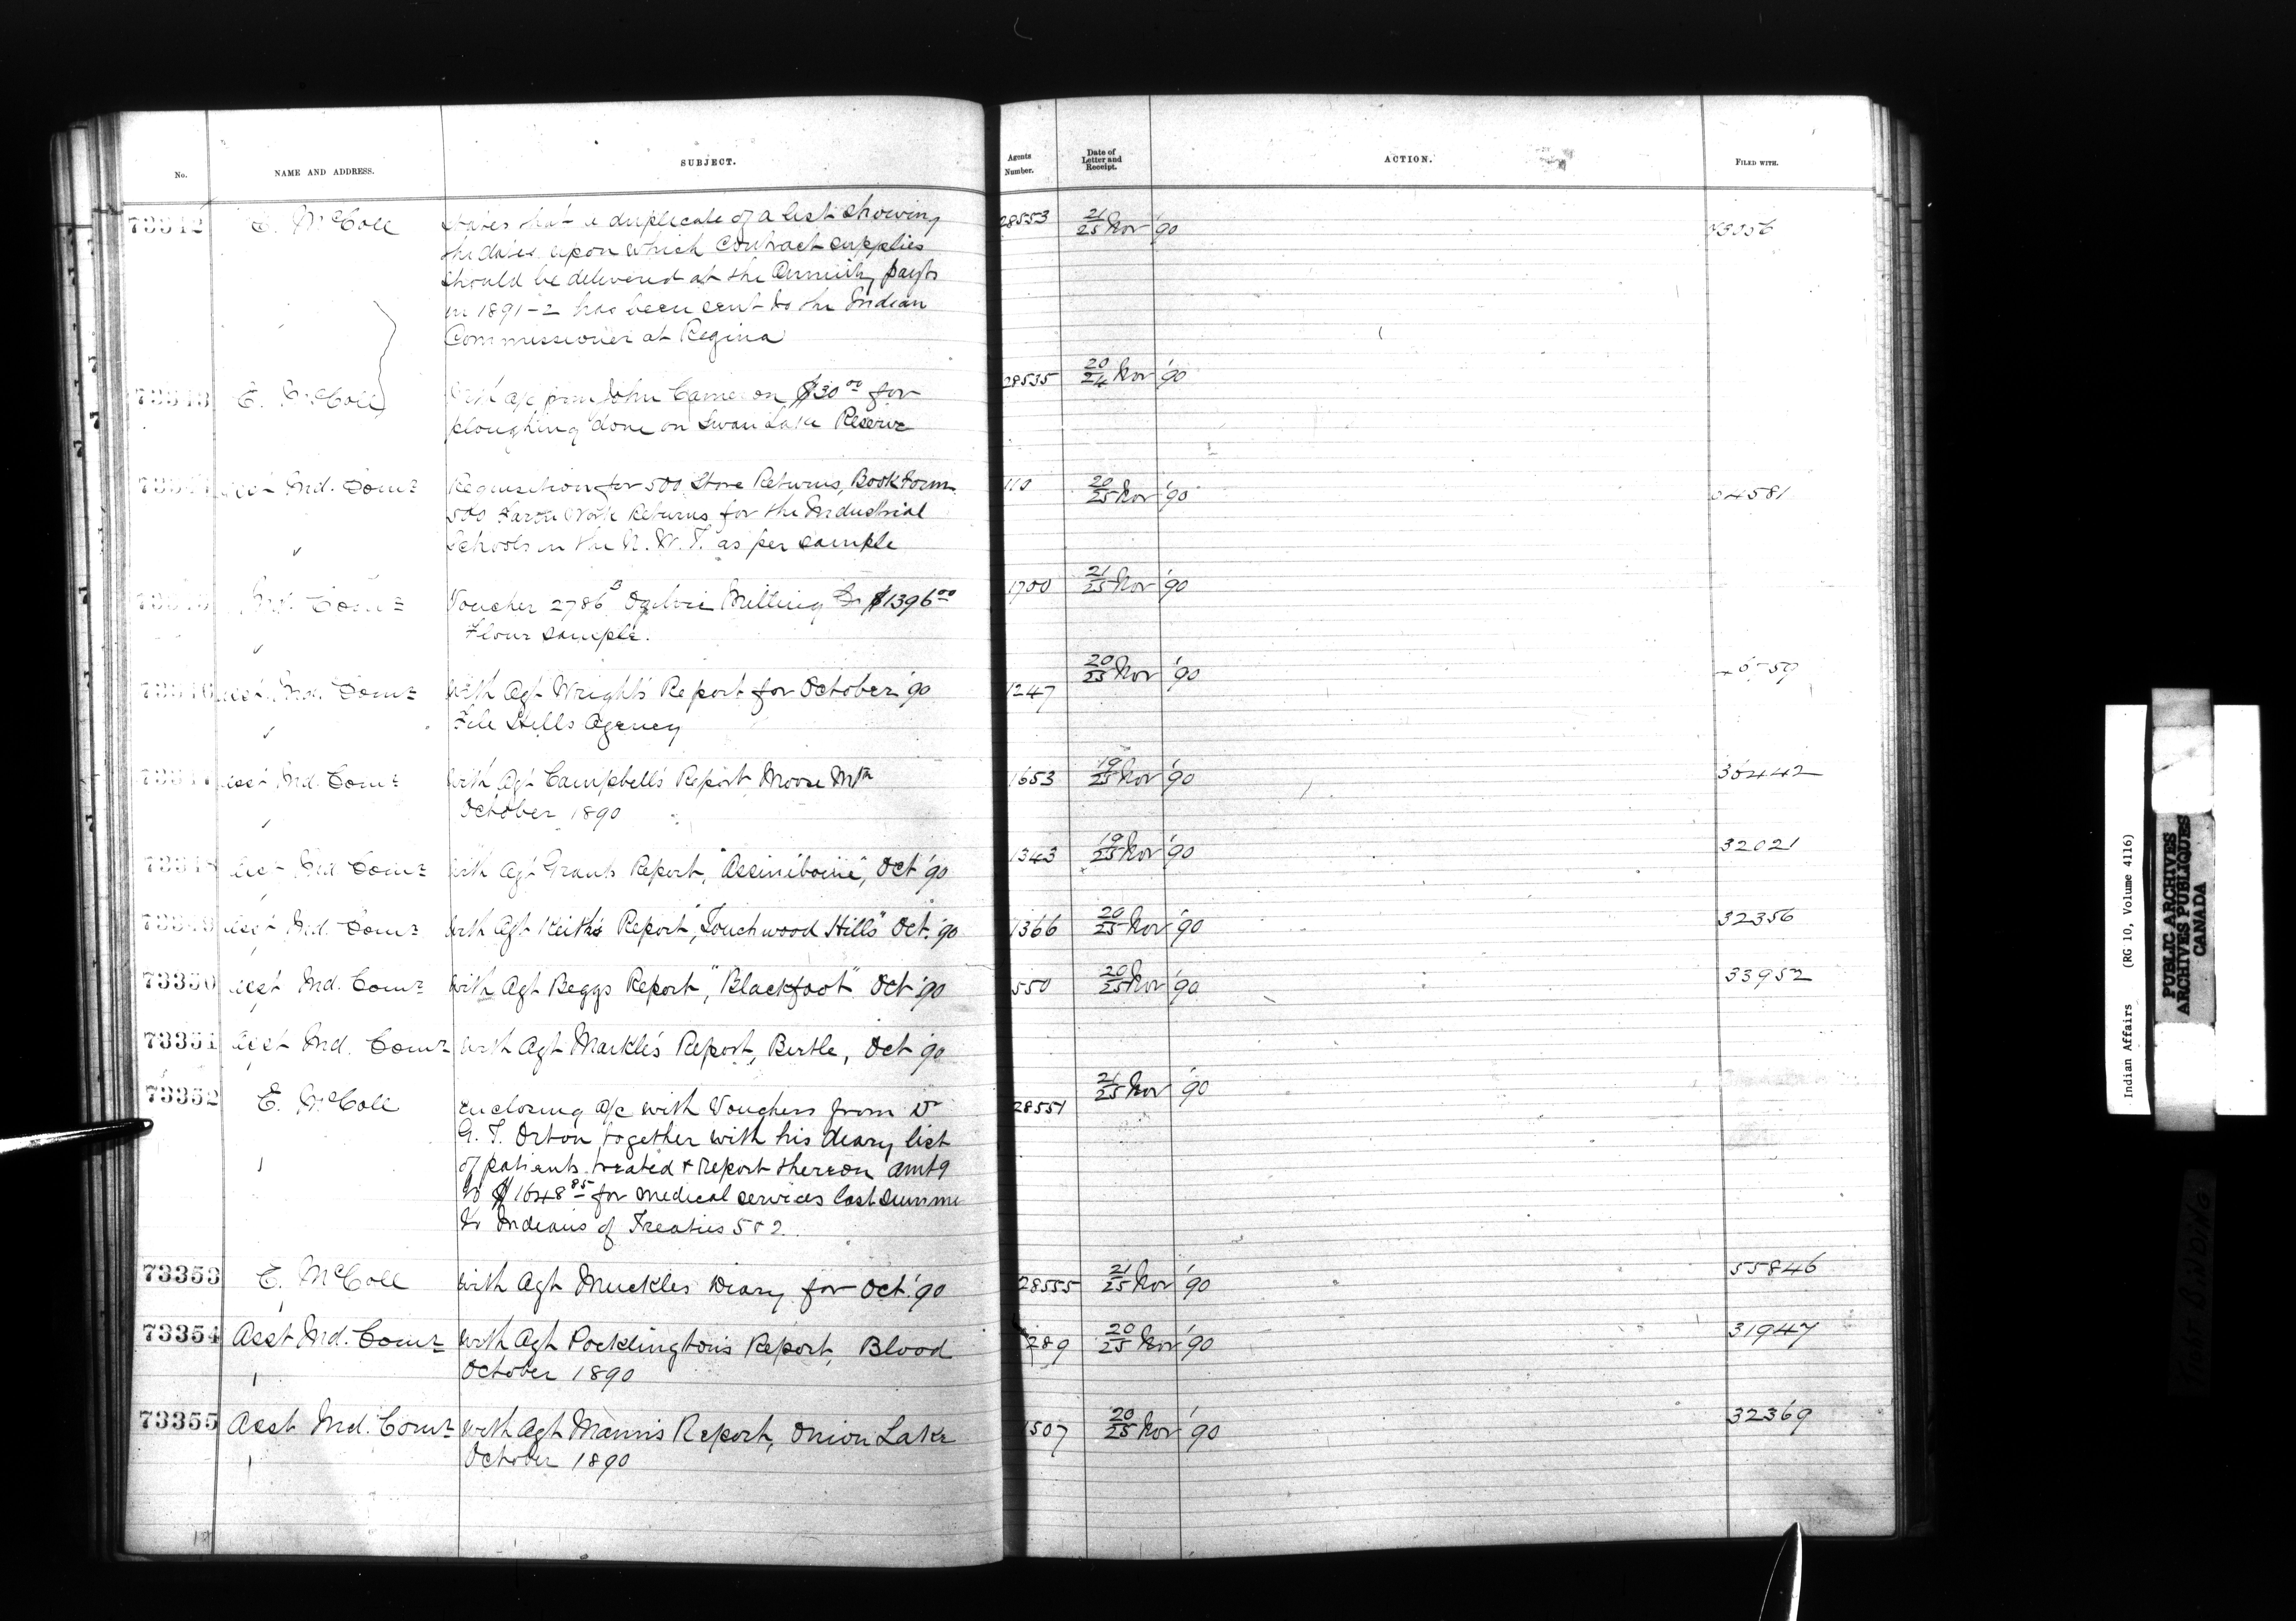 No. NAME AND ADDRESS. SUBJECT. Agents Number. Date of Letter and Receipt. ACTION. FILED WITH.
73342 E. McColl States that a duplicate of a list showing 28553 21/25 Nov '90
the dates upon which Contract supplies
should be delivered at the Annuity payts
in 1891-2 has been sent to the Indian
Commissioner at Regina
73343 E. McColl With a/c from John Cameron $30.00 for 28535 20/24 Nov '90
ploughing done on Swan Lake Reserve
Asst Ind. Comr Requisition for 500 Store Returns, Book Form 110 20/25 Nov '90
500 Farm Work Returns for the Industrial
Schools in the N. W. T. as per sample
Ind. Comr Voucher 2786 B Ogilvie Milling Co $1396.00 1700 21/25 Nov '90
Flour sample.
73346 Asst. Ind. Comr With Agt Wright's Report for October '90 1247 20/25 Nov '90
File Hills Agency
73347 Asst Ind. Comr With Agt Campbell's Report Moose Mtn 1653 19/25 Nov '90 36442
October 1890
73348 Asst Ind Comr With Agt Grants Report, "Assiniboine", Oct '90 1343 19/25 Nov '90 32021
73349 Asst Ind. Comr With Agt Keith's Report, "Touchwood Hills" Oct. '90 1366 20/25 Nov '90 32356
73350 Asst Ind. Comr With Agt Beggs Report, "Blackfoot" Oct '90 550 20/25 Nov '90 33952
73351 Asst Ind. Comr With Agt Markle's Report, Birtle, Oct '90
73352 E. McColl Enclosing a/c with Vouchers from Dr 28551 21/25 Nov '90
G. T. Orton together with his diary, list
of patients treated & Report thereon amtg
to $1648.85 for medical services last summe
to Indians of Treaties 5 & 2.
73353 E. McColl With Agt Muckles Diary for Oct. '90 28555 21/25 Nov '90 55846
73354 Asst Ind. Comr With Agt Pocklington's Report, Blood 289 20/25 Nov '90 31947
October 1890
73355 Asst Ind. Comr With Agt Mann's Report, Onion Lake 1507 20/25 Nov '90 32369
October 1890
Indian Affairs (RG 10, Volume 4116)
PUBLIC ARCHIVES
ARCHIVES PUBLIQUES
CANADA
TIGHT BINDING